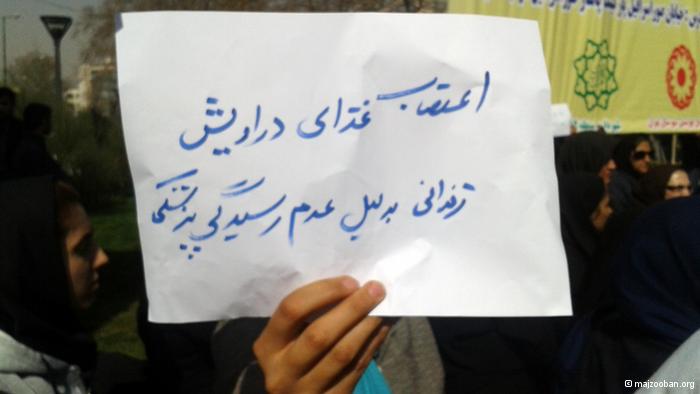 اعتصاب غذای دراویش
زندانی بدلیل عدم رسیدگی پزشکی
© majzooban.org